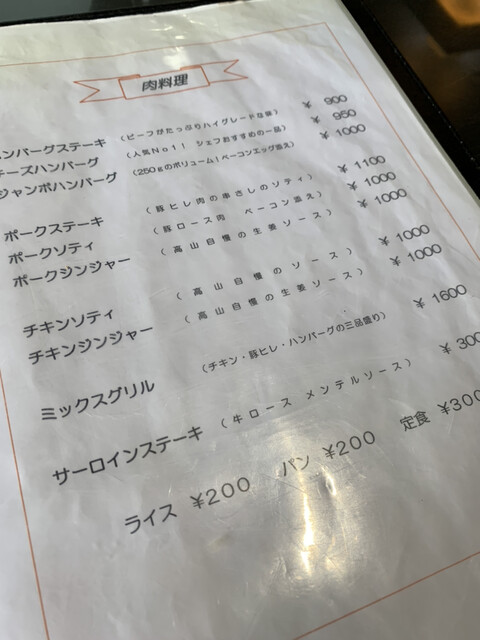 肉料理
ハンバーグステーキ (ビーフがたっぷりハイグレードな味) ¥ 900
チーズハンバーグ (人気No1! シェフおすすめの一品) ¥ 950
ジャンボハンバーグ (250gのボリューム!ベーコンエッグ添え) ¥ 1000
ポークステーキ (豚ヒレ肉の串さしのソティ) ¥ 1100
ポークソティ (豚ロース肉 ベーコン添え) ¥ 1000
ポークジンジャー (高山自慢の生姜ソース) ¥ 1000
チキンソティ (高山自慢のソース) ¥ 1000
チキンジンジャー (高山自慢の生姜ソース) ¥ 1000
ミックスグリル (チキン・豚ヒレ・ハンバーグの三品盛り) ¥ 1600
サーロインステーキ (牛ロース メンテルソース) ¥ 300
ライス ¥200 パン ¥200 定食 ¥300